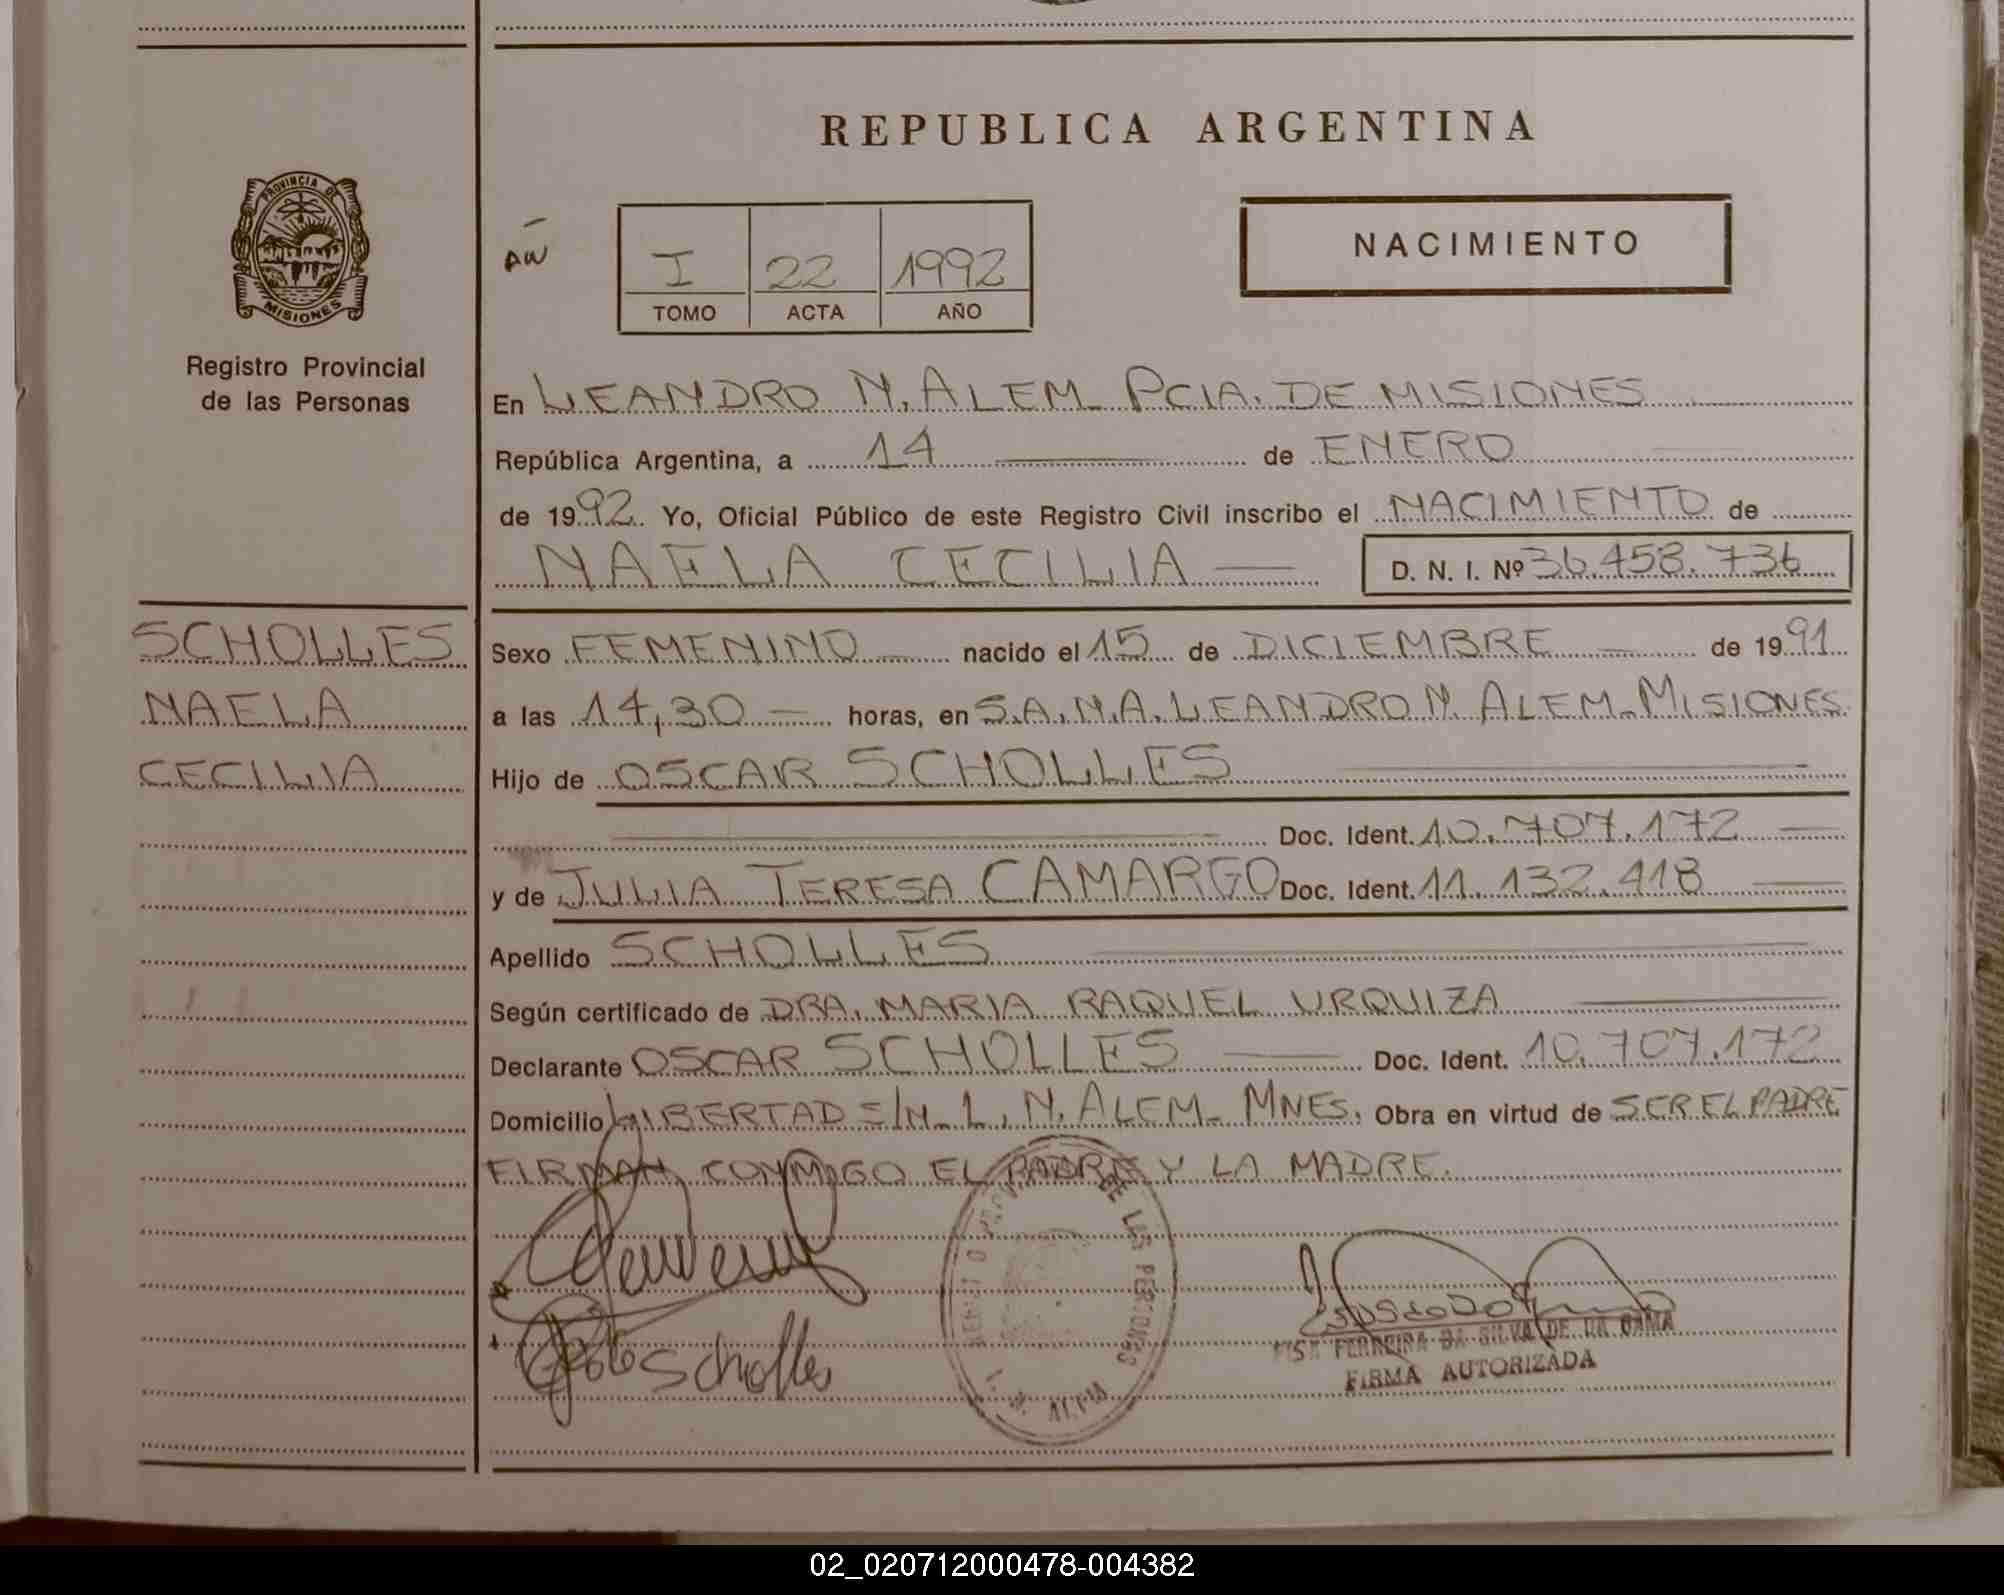 REPUBLICA ARGENTINA
PROVINCIA DE
MISIONES
Registro Provincial
de las Personas
I 22 1992
TOMO ACTA AÑO
NACIMIENTO
En LEANDRO N. ALEM - PCIA. DE MISIONES
República Argentina, a 14 de ENERO
de 1992. Yo, Oficial Público de este Registro Civil inscribo el NACIMIENTO de
NAELA CECILIA D. N. I. Nº 36.458.736
SCHOLLES
NAELA
CECILIA
Sexo FEMENINO nacido el 15 de DICIEMBRE de 1991
a las 14,30 horas, en S.A.N.A. LEANDRO N. ALEM - MISIONES
Hijo de OSCAR SCHOLLES
Doc. Ident. 10.707.172
y de JULIA TERESA CAMARGO Doc. Ident. 11.132.418
Apellido SCHOLLES
Según certificado de DRA. MARIA RAQUEL URQUIZA
Declarante OSCAR SCHOLLES Doc. Ident. 10.707.172
Domicilio LIBERTAD S/N - L. N. ALEM - MNES. Obra en virtud de SER EL PADRE
FIRMAN CONMIGO EL PADRE Y LA MADRE.
DE LAS PERSONAS
Scholles
FERREIRA DA SILVA DE LA GAMA
FIRMA AUTORIZADA
02_020712000478-004382